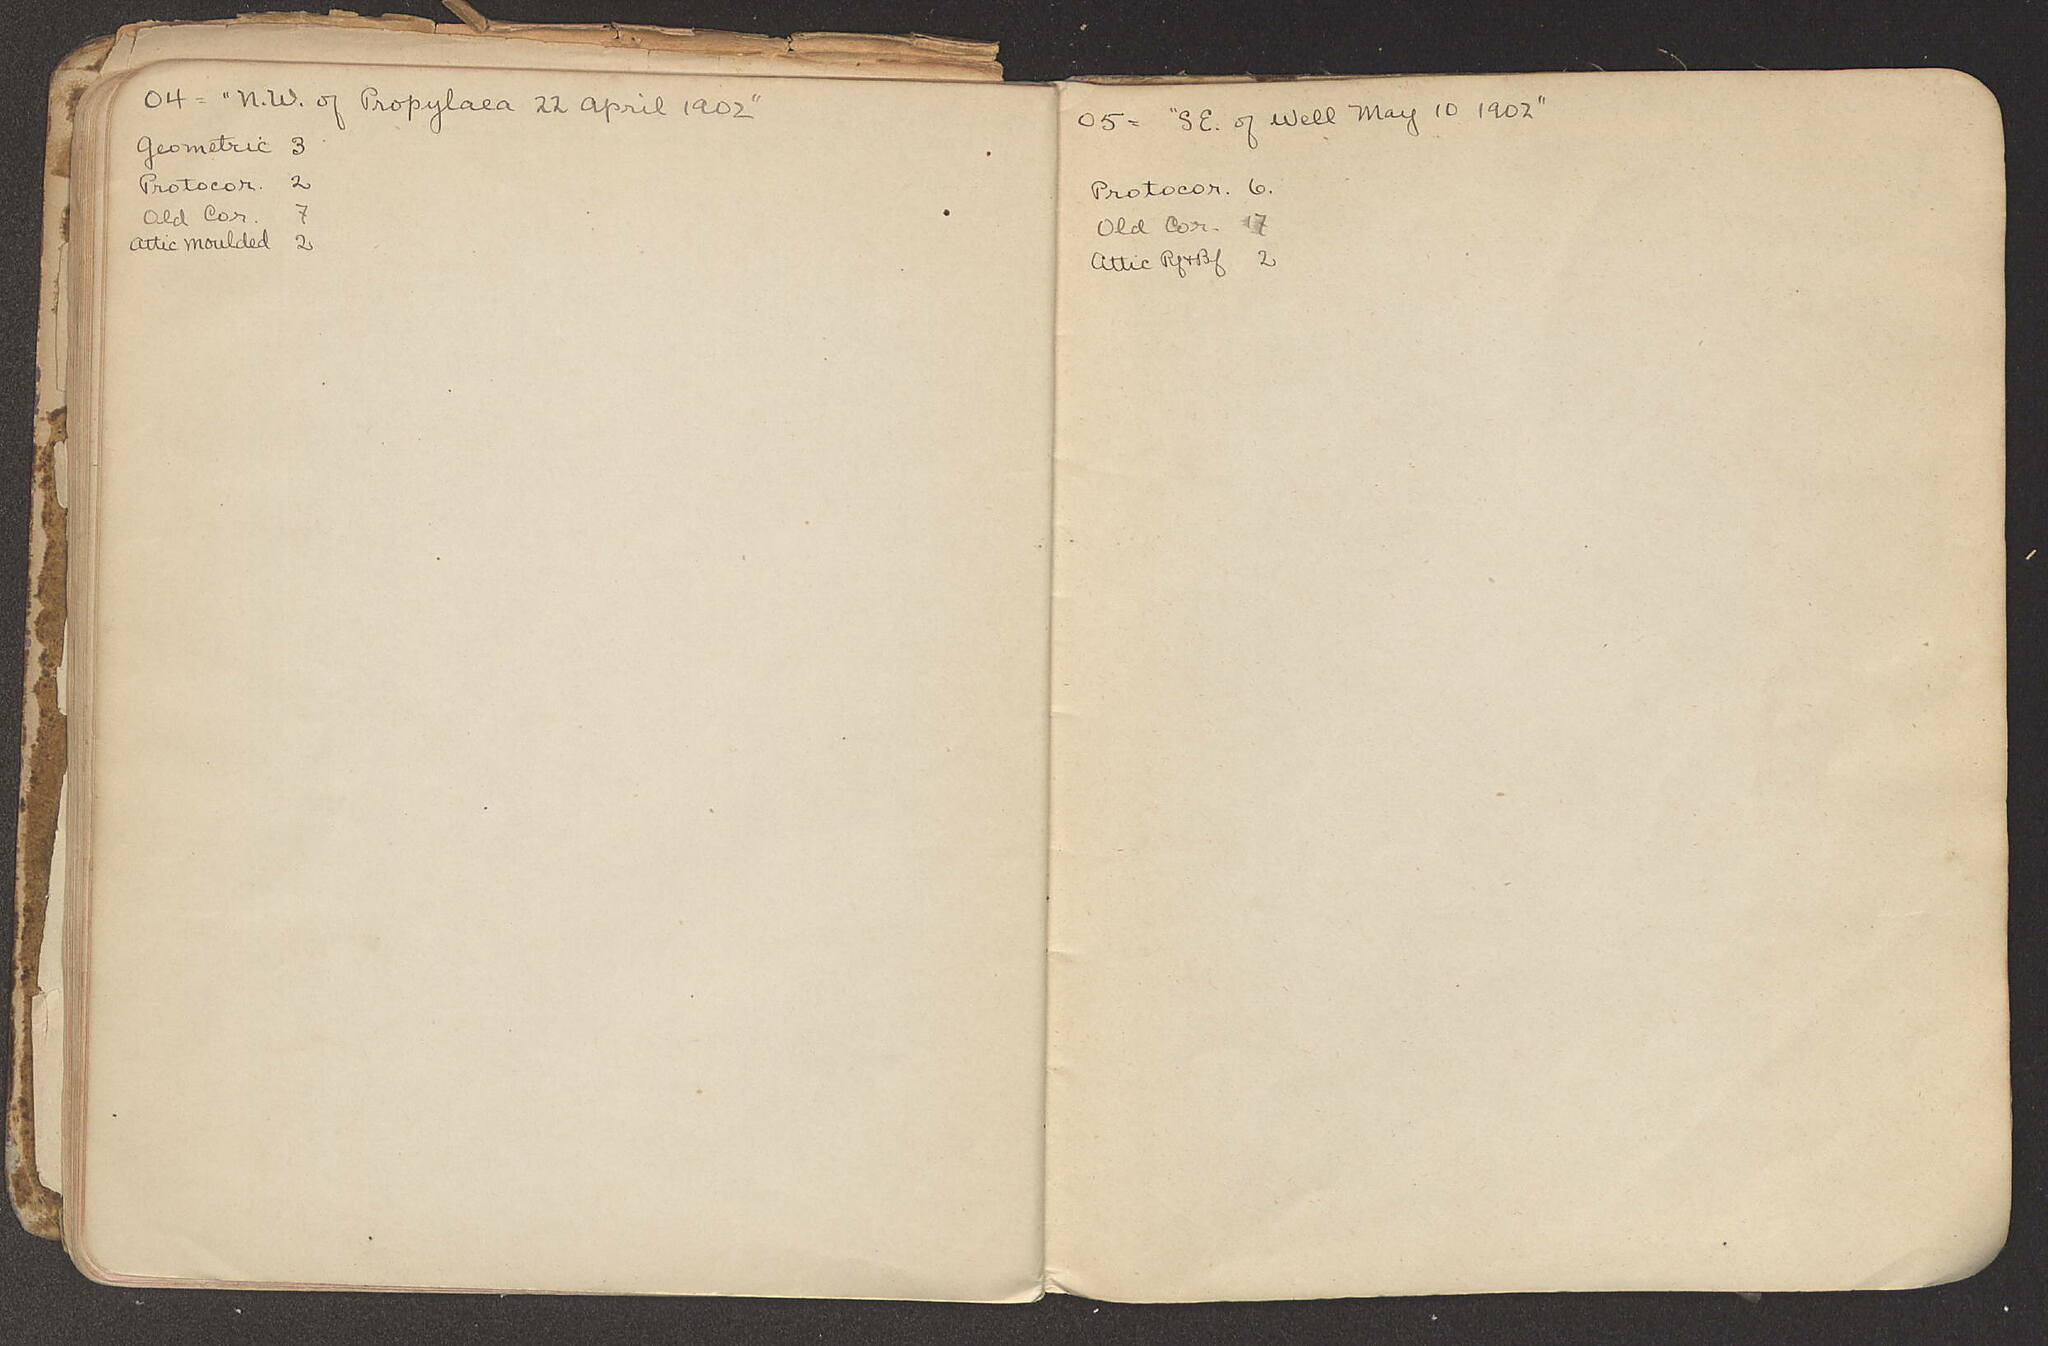 04 = "N.W. of Propylaea 22 April 1902"
Geometric 3
Protocor. 2
Old Cor. 7
Attic Moulded 2
05 = "S E. of Well May 10 1902"
Protocor. 6.
Old Cor. 7
Attic Rf + Bf 2